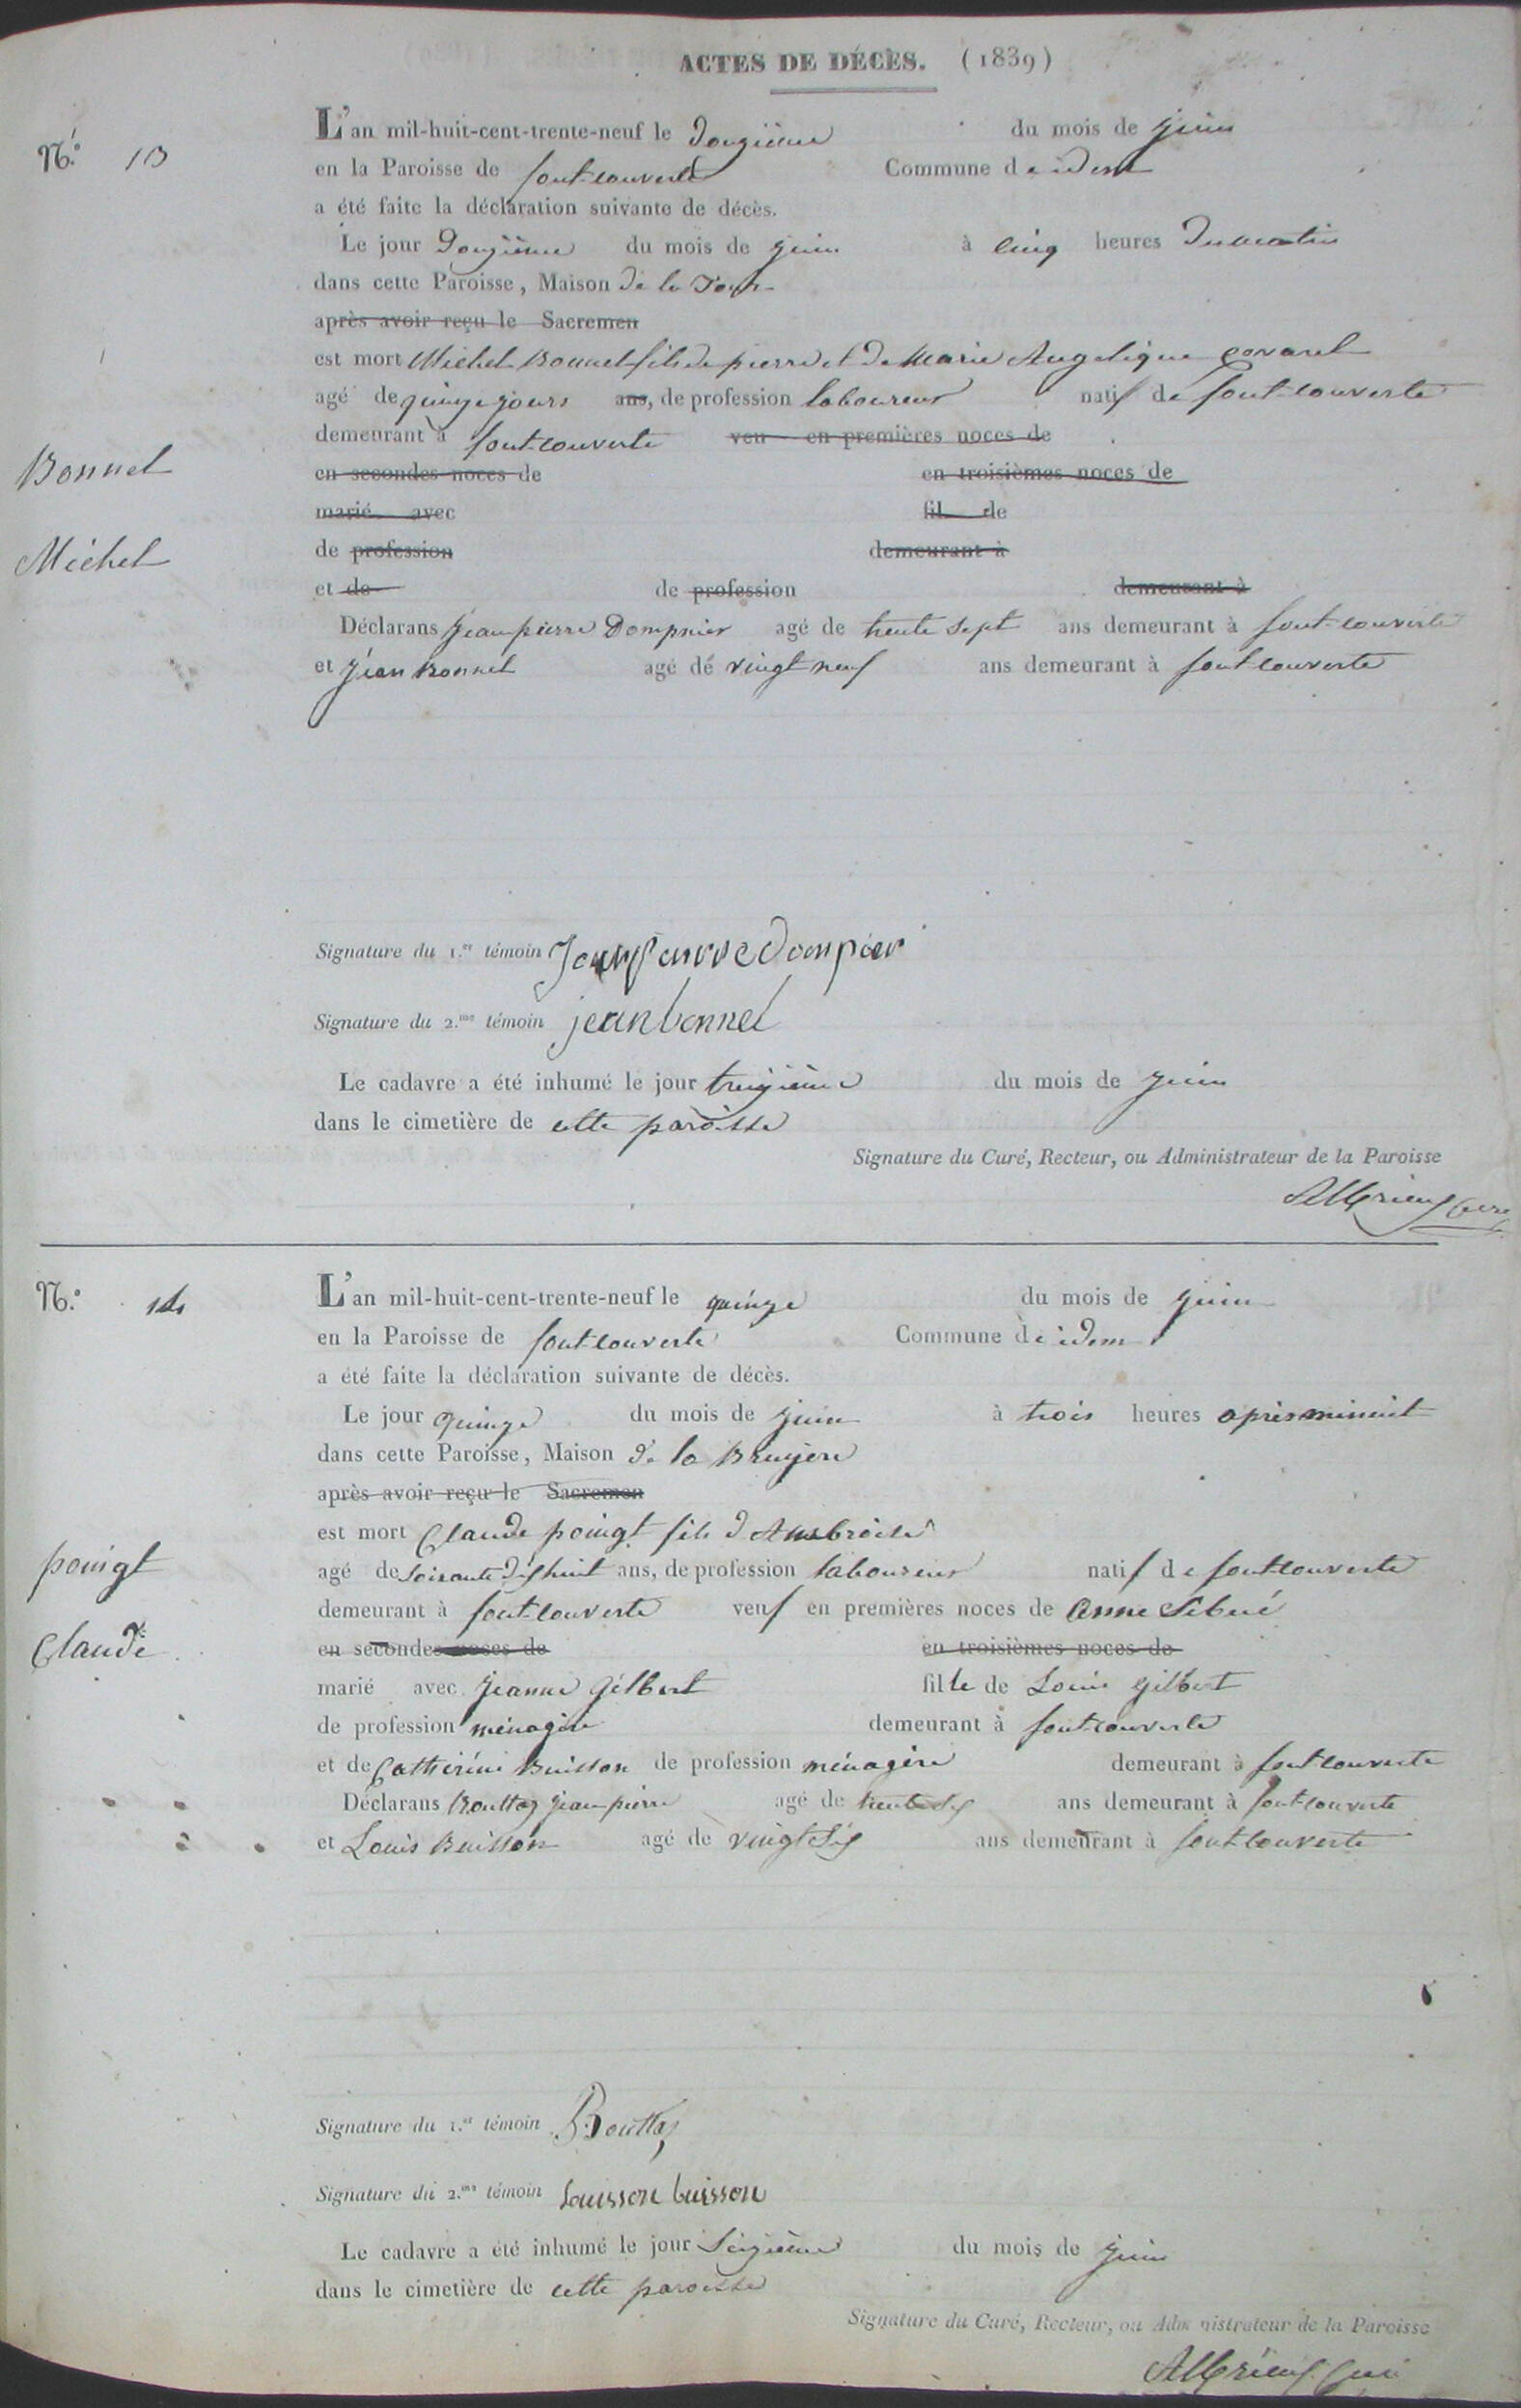 ACTES DE DÉCÈS. (1839)
N.° 13
L'an mil-huit-cent-trente-neuf le Douzième du mois de juin
en la Paroisse de fontcouverte Commune de idem
a été faite la déclaration suivante de décès.
Le jour Douzième du mois de juin à cinq heures Du matin
dans cette Paroisse, Maison De la Tour
après avoir reçu le Sacremen
est mort Michel Bonnel fils de pierre et De Marie Angelique covarel
agé de quinze jours ans, de profession laboureur natif de fontcouverte
demeurant à fontcouverte veu en premières noces de
Bonnel
en secondes noces de en troisièmes noces de
marié avec fil de
Michel
de profession demeurant à
et de de profession demeurant à
Déclarans Jean pierre Dompnier agé de trente sept ans demeurant à fontcouverte
et Jean Bonnel agé de vingt neuf ans demeurant à fontcouverte
Signature du 1.er témoin Jean Pierre Dompier
Signature du 2.me témoin jean bonnel
Le cadavre a été inhumé le jour treizième du mois de juin
dans le cimetière de cette paroisse
Signature du Curé, Recteur, ou Administrateur de la Paroisse
N.° 14
L'an mil-huit-cent-trente-neuf le quinze du mois de juin
en la Paroisse de fontcouverte Commune de idem
a été faite la déclaration suivante de décès.
Le jour quinze du mois de juin à trois heures après minuit
dans cette Paroisse, Maison De la Bruyere
après avoir reçu le Sacremen
est mort Claude poingt fils d'Ambroise
pouigt
agé de soixante dix huit ans, de profession laboureur natif de fontcouverte
demeurant à fontcouverte veuf en premières noces de Anne Sibué
Claude
en secondes noces de en troisièmes noces de
marié avec Jeanne Gilbert fille de Louis Gilbert
de profession ménagère demeurant à fontcouverte
et de Catherine Buisson de profession ménagère demeurant à fontcouverte
Déclarans Bouttaz Jean pierre agé de trente six ans demeurant à fontcouverte
et Louis Buisson agé de vingt six ans demeurant à fontcouverte
Signature du 1.er témoin Bouttaz
Signature du 2.me témoin Louisson buisson
Le cadavre a été inhumé le jour Seizième du mois de juin
dans le cimetière de cette paroisse
Signature du Curé, Recteur, ou Administrateur de la Paroisse